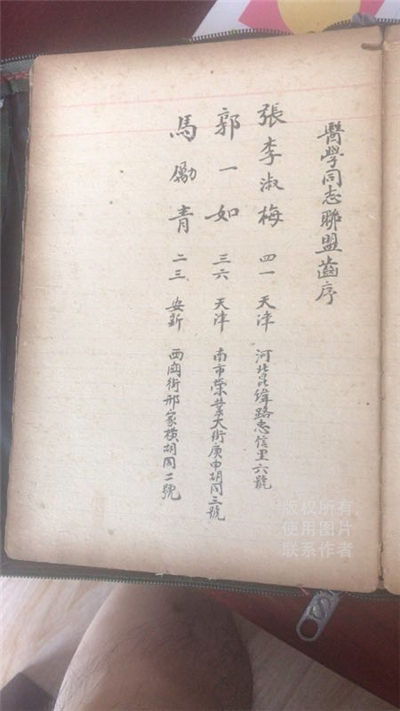 醫學同志聯盟齒序
張李淑梅 四一 天津 河北昆緯路忠信里六號
郭一如 三六 天津 南市榮業大街庚申胡同三號
馬勵青 二三 安新 西関街邢家橫胡同二號
版权所有
使用图片
联系作者